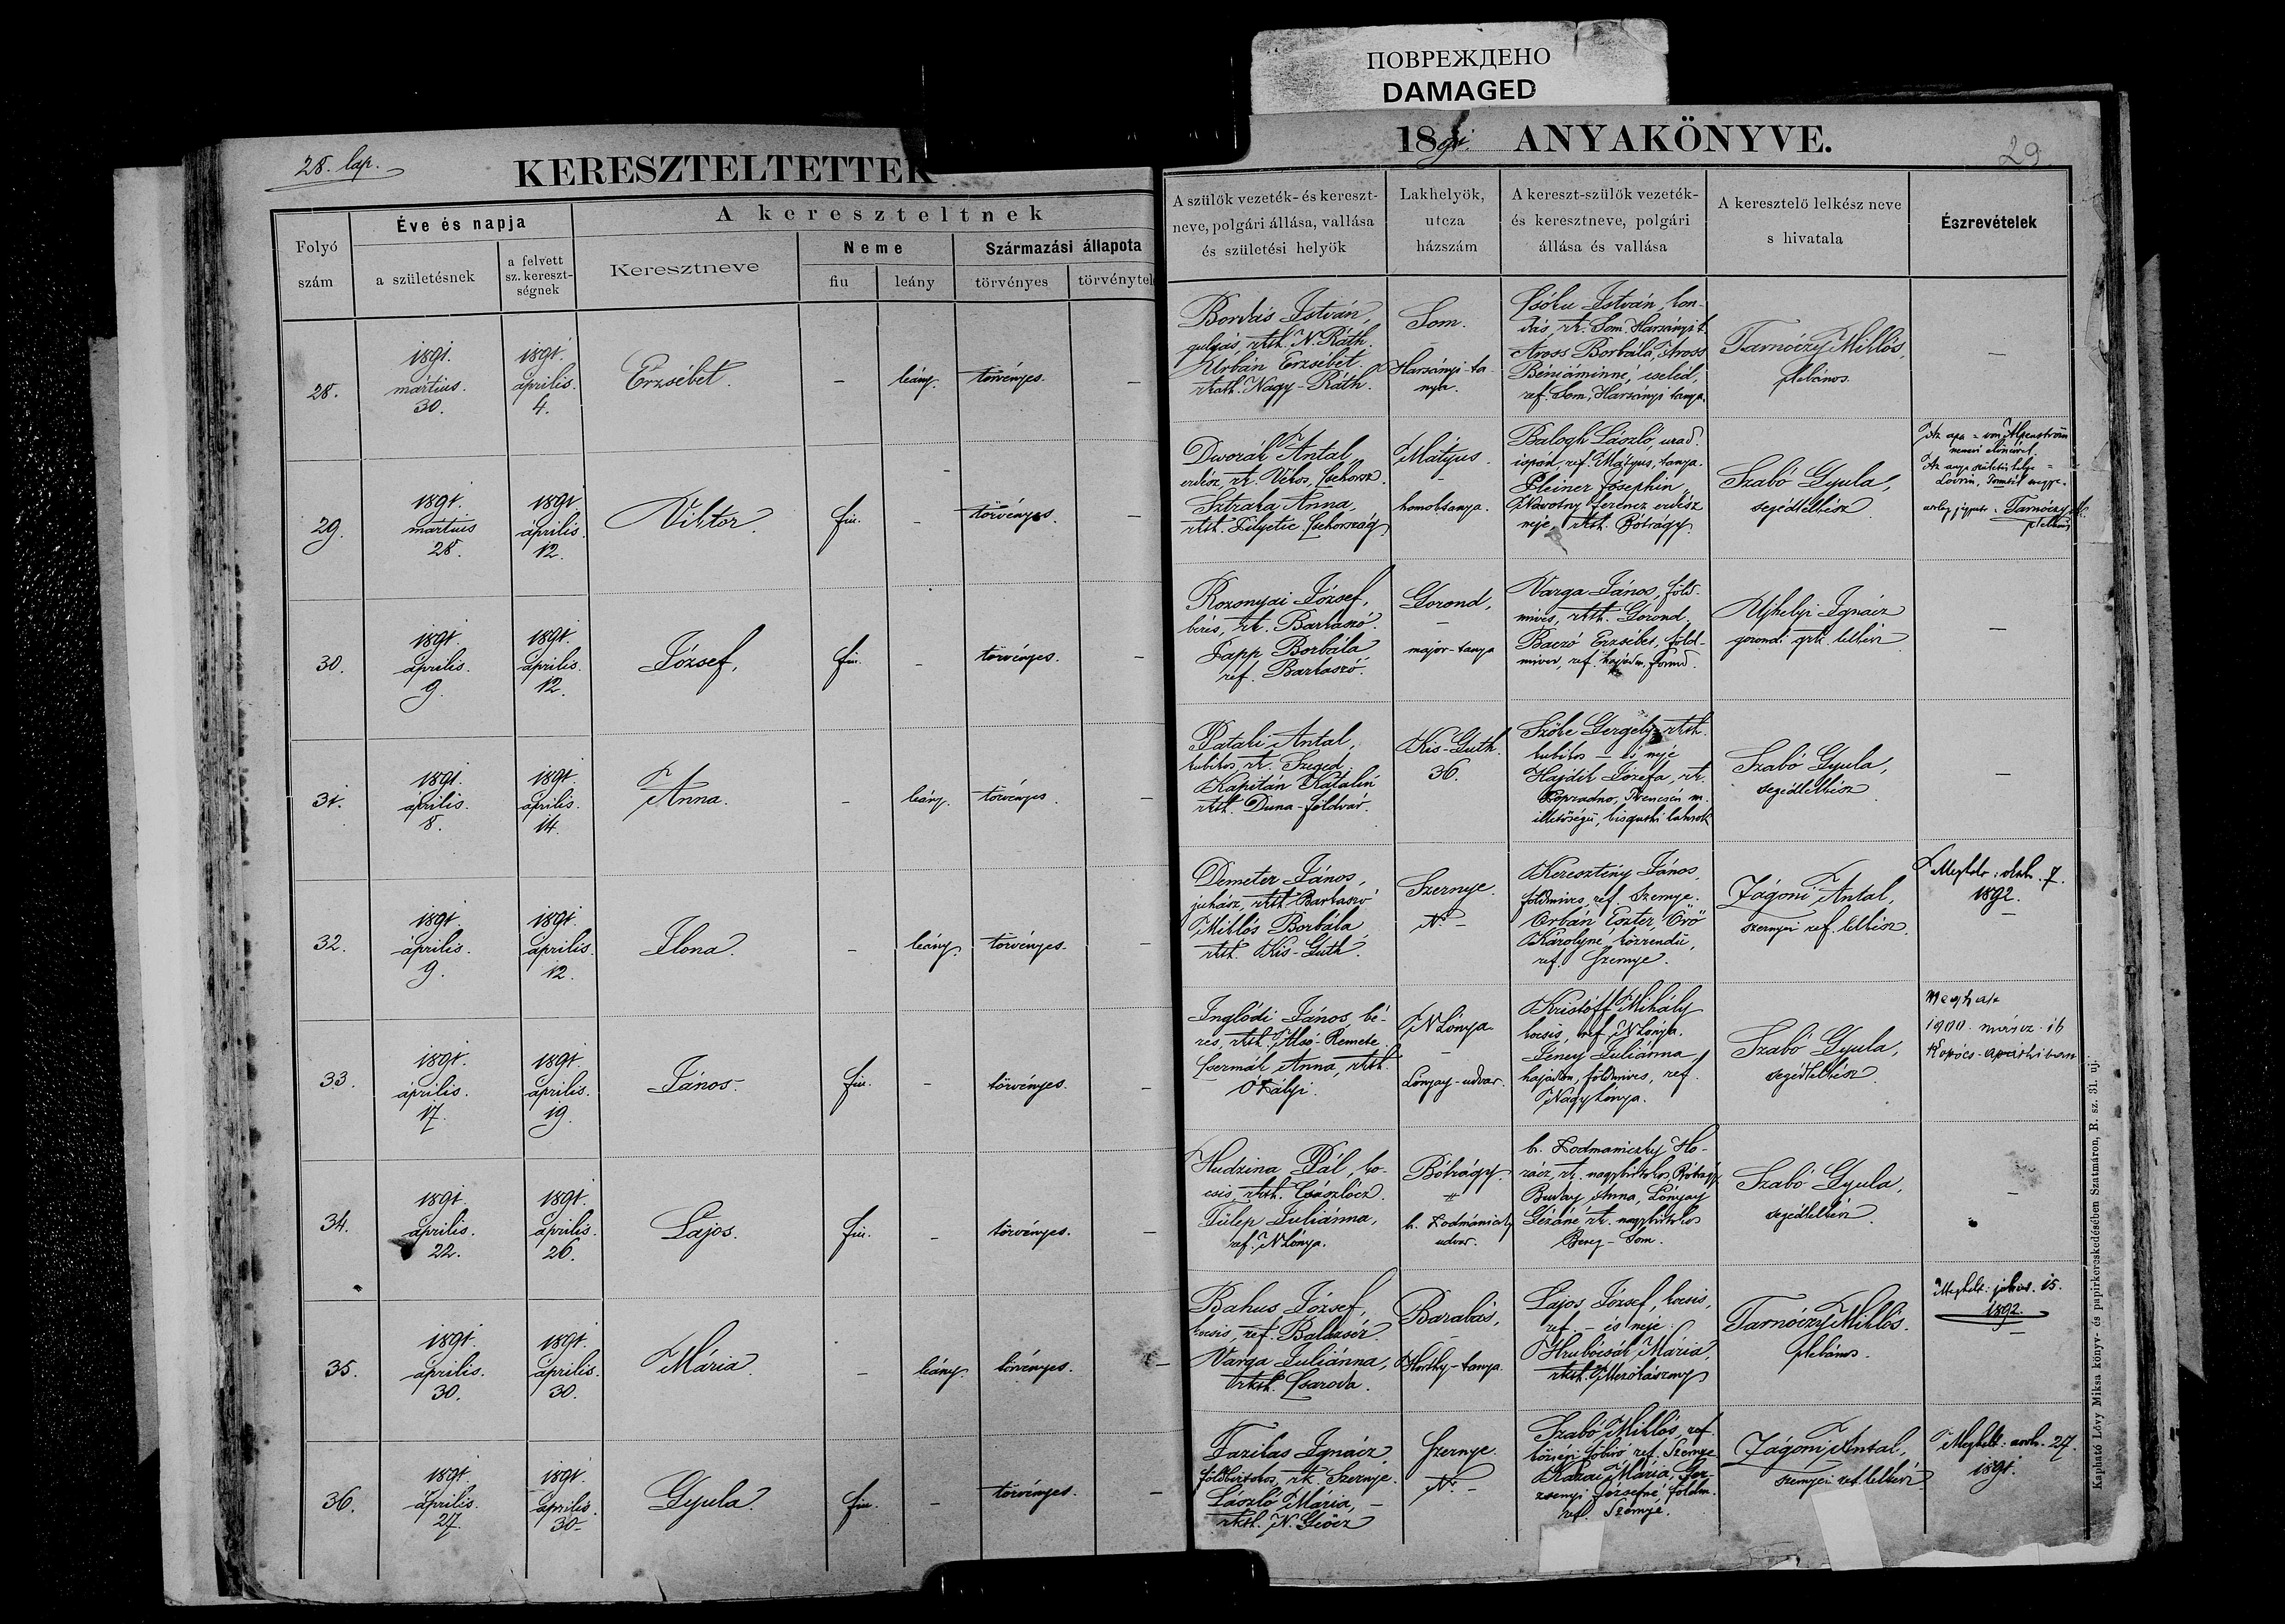 ПОВРЕЖДЕНО
DAMAGED
28. lap.
KERESZTELTETTEK
1891. ANYAKÖNYVE.
29
Folyó szám
Éve és napja
a születésnek
a felvett sz. kereszt-ségnek
A kereszteltnek
Keresztneve
Neme
fiu
leány
Származási állapota
törvényes
törvénytel
A szülök vezeték- és kereszt-
neve, polgári állása, vallása
és születési helyök
Lakhelyök,
utcza
házszám
A kereszt-szülök vezeték-
és keresztneve, polgári
állása és vallása
A keresztelö lelkész neve
s hivatala
Észrevételek
28.
1891.
mártius.
30.
1891.
április.
4.
Erzsébet.
–
leány.
törvényes.
–
Bordás István,
gulyás, rkth. N. Ráth.
Urbán Erzsébet
rkath. Nagy-Ráth.
Som.
–
Harsányi-ta-
nya.
Csóku István, kon-
dás, rk. Som. Harsányi t.
Aross Borbála, Aross
Béniáminné, cseléd,
ref. Som, Harsányi tanya.
Tarnóczy Miklós,
plebános.
–
29.
1891.
martius
28.
1891.
április.
12.
Viktor.
fiu.
–
törvényes.
–
Dworák Antal,
erdész, rk. Csehorsz.
Sztraka Anna,
rkth. Csehország
Mátyus.
–
homoktanya.
Balogh László, urad.
ispán, ref. Mátyus, tanya.
Pleiner Josephin,
Nawotny Ferencz erdész
neje, rkth. Bótrágy.
Szabó Gyula,
segédlelkész
Az apa = von Alpenstrom
nemesi előnévvel.
Az anya születési helye =
Tarnóczy M.
plebános
30.
1891.
április.
9.
1891.
április.
12.
József,
fiu.
–
törvényes.
–
Rozonyai József,
béres, rk. Barkaszó.
Papp Borbála
ref. Barkaszó.
Gorond,
–
major-tanya
Varga János, föld-
mives, rkth. Gorond,
Baczó Erzsébet, föld-
mives, ref. hajadon, Gorond.
Ujhelyi Ignácz
gorondi grk. lelkész
–
31.
1891.
április.
8.
1891.
április.
14.
Anna.
–
leány.
törvényes.
–
Pataki Antal,
kubikos, rk. Szeged.
Kapitán Katalin
rkth. Duna-földvár.
Kis-Guth.
36.
Szőke Gergely, rkth.
kubikos – és neje
Hajdik Józefa, rk.
Popradno, Trencsén m.
illetőségü, kisguthi lakosok
Szabó Gyula,
segédlelkész
–
32.
1891.
április.
9.
1891.
április.
12.
Ilona.
–
leány.
törvényes.
–
Demeter János,
juhász, rkth. Barkaszó
Miklós Borbála,
rkth. Kis-Guth.
Szernye.
N. –
Keresztény János,
földmives, ref. Szernye.
Orbán Eszter, Orö
Károlyne, közrendü,
ref. Szernye.
Zágoni Antal,
szernyei ref. lelkész.
Meghalt: oktob. 7.
1892.
–
33.
1891.
április.
17.
1891.
április.
19.
János.
fiu.
–
törvényes.
–
Inglódi János, bé-
res, rkth. Alsó-Remete.
Csermák Anna, rkth.
Ó Kályi.
N Lónya.
–
Lónyay-udvar.
Kristóff Mihály
kocsis, ref. N Lónya.
Juliánna,
hajadon, földmives, ref.
Nagylónya.
Szabó Gyula,
segédlelkész.
Meghalt
1900. márcz. 16
Kopócs-apáthiban
34.
1891.
április.
22.
1891.
április.
26.
Lajos.
fiu.
–
törvényes.
–
Hudzina Pál, ko-
csis, rkth. Császlócz.
Fülep Juliánna,
ref. N Lónya.
Bótrágy.
"
b. Podmániczky
udvar.
b. Podmaniczky Ho-
rácz, rk. nagybirtokos, Bótrágy
Buday Anna, Lónyay
Gézáné rk. nagybirtokos
Bereg-Som.
Szabó Gyula,
segédlelkész
–
35.
1891.
április.
30.
1891.
április.
30.
Mária.
–
leány.
törvényes.
–
Bakus József,
kocsis, ref. Balazsér.
Varga Juliánna,
rkth. Csaroda.
Barabás,
–
Horthy-tanya.
Lajos József, kocsis,
ref. – és neje:
Hrubócsák Mária,
rkth. Mezőkászony
Tarnóczy Miklós.
plebános.
Meghalt: julius. 15.
1892.
–
36.
1891.
április.
27.
1891.
április.
30.
Gyula.
fiu.
–
törvényes.
–
Fazikas Ignácz,
földbirtokos, rk. Szernye.
László Mária, –
rkth. N. Geőcz
Szernye.
N. –
Szabó Miklós, ref.
községi főbiró ref. Szernye
Mária,
Józsefné, földm.
ref. Szernye.
Zágoni Antal,
szernyei ref. lelkész
Meghalt: 27.
1891.
Kapható Lövy Miksa könyv- és papirkereskedésében Szatmáron, R. sz. 31. uj.